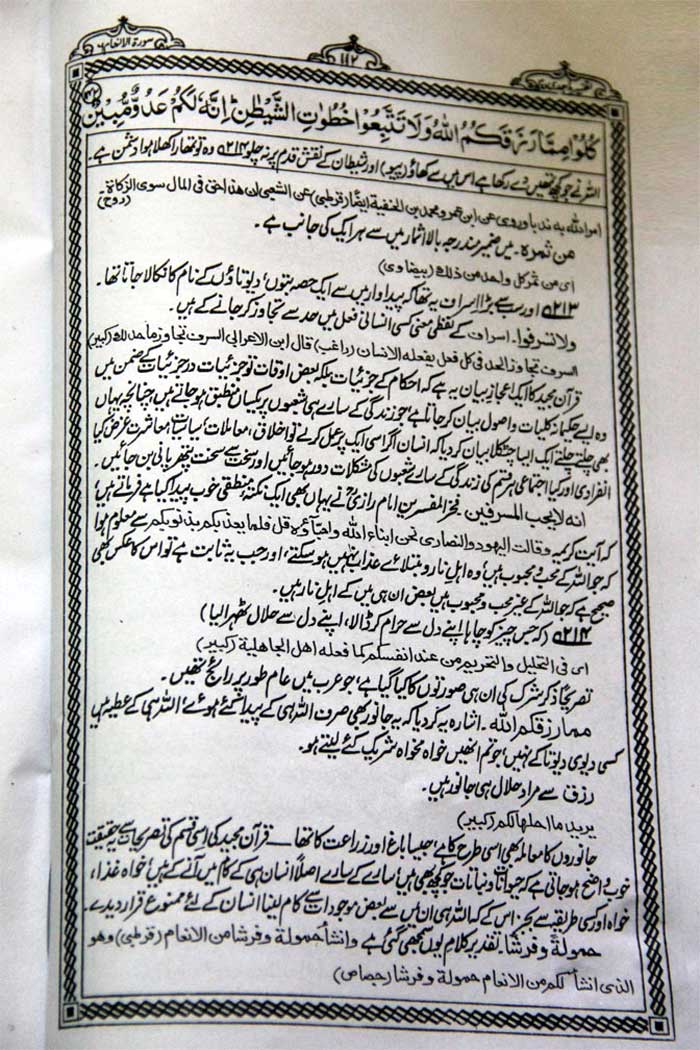 سورة الانعام ٦
١٤٢
كُلُوْا مِمَّا رَزَقَكُمُ اللّٰهُ وَلَا تَتَّبِعُوْا خُطُوٰتِ الشَّيْطٰنِ ؕ اِنَّهٗ لَكُمْ عَدُوٌّ مُّبِيْنٌ
اللہ نے جو کچھ تمھیں دے رکھا ہے اس میں سے کھاؤ (پیو) اور شیطان کے نقش قدم پر نہ چلو ۵۲۱۴ وہ تو تمھارا کھلا ہوا دشمن ہے۔
امر اللہ بہ ندبا وروی عن ابن عمر و محمد بن الحنفیة ایضًا (قرطبی) عن الشعبی ان ھذا حق فی المال سوی الزکاة (روح)
من ثمرہ۔ میں ضمیر مندرجہ بالا اثمار میں سے ہر ایک کی جانب ہے۔
ای من ثمر کل واحد من ذلك (بیضاوی)
۵۲۱۳ اور سب سے بڑا اسراف یہ تھا کہ پیداوار میں سے ایک حصہ بتوں، دیوتاؤں کے نام کا نکالا جاتا تھا۔
ولا تسرفوا۔ اسراف کے لفظی معنی کسی انسانی فعل میں حد سے تجاوز کر جانے کے ہیں۔
السرف تجاوز الحد فی کل فعل یفعله الانسان (راغب) قال ابن الاعرابی السرف تجاوز ما حد لك (کبیر)
قرآن مجید کا ایک اعجاز بیان یہ ہے کہ احکام کے جزئیات بلکہ بعض اوقات تو جزئیات در جزئیات کے ضمن میں
وہ ایسے حکیمانہ کلیات و اصول بیان کر جاتا ہے، جو زندگی کے سارے ہی شعبوں پر یکساں منطبق ہو جاتے ہیں، چنانچہ یہاں
بھی چلتے چلتے ایک ایسا چٹکلا بیان کر دیا کہ انسان اگر اسی ایک پر عمل کرلے تو اخلاق، معاملات، سیاسیات، معاشرت غرض کیا
انفرادی اور کیا اجتماعی ہر قسم کی زندگی کے سارے شعبوں کی مشکلات دور ہو جائیں اور سخت سے سخت پتھر پانی بن جائیں۔
انہ لا یحب المسرفین۔ فخر المفسرین امام رازیؒ نے یہاں بھی ایک نکتۂ منطقی خوب پیدا کیا ہے فرماتے ہیں،
کہ آیت کریمہ وقالت الیهود والنصاری نحن ابناء الله واحباؤہ قل فلم یعذبکم بذنوبکم سے معلوم ہوا
کہ جو اللہ کے محب و محبوب ہیں، وہ اہل نار و مبتلائے عذاب نہیں ہو سکتے، اور جب یہ ثابت ہے تو اس کا عکس بھی
صحیح ہے کہ جو اللہ کے غیر محب و محبوب ہیں بعض ان ہی میں کے اہل نار ہیں۔
۵۲۱۴ (کہ جس چیز کو چاہا اپنے دل سے حرام کر ڈالا، اپنے دل سے حلال ٹھہرا لیا)
ای فی التحلیل والتحریم من عند انفسکم کما فعله اهل الجاهلیة (کبیر)
تصریحًا ذکر شرک کی ان ہی صورتوں کا کیا گیا ہے، جو عرب میں عام طور پر رائج تھیں۔
مما رزقکم الله۔ اشارہ یہ کر دیا کہ یہ جانور بھی صرف اللہ ہی کے پیدا کئے ہوئے، اللہ ہی کے عطیہ ہیں
کسی دیوی دیوتا کے نہیں، جو تم انھیں خواہ مخواہ شریک کئے لیتے ہو۔
رزق سے مراد حلال ہی جانور ہیں۔
یرید ما احلها لکم (کبیر)
جانوروں کا معاملہ بھی اسی طرح کا ہے، جیسا باغ اور زراعت کا تھا — قرآن مجید کی اِسی قسم کی تصریحات سے یہ حقیقت
خوب واضح ہو جاتی ہے کہ حیوانات و نباتات جو کچھ بھی ہیں، سارے کے سارے اصلًا انسان ہی کے کام میں آنے کے ہیں، خواہ غذاء،
خواہ اور کسی طریقہ سے بجز اس کے کہ اللہ ہی ان میں سے بعض موجودات سے کام لینا انسان کے لئے ممنوع قرار دیدے۔
حمولة و فرشا۔ تقدیر کلام یوں سمجھی گئی ہے وانشأ حمولة وفرشا من الانعام (قرطبی) وهو
الذی انشأ لکم من الانعام حمولة و فرشا (جصاص)